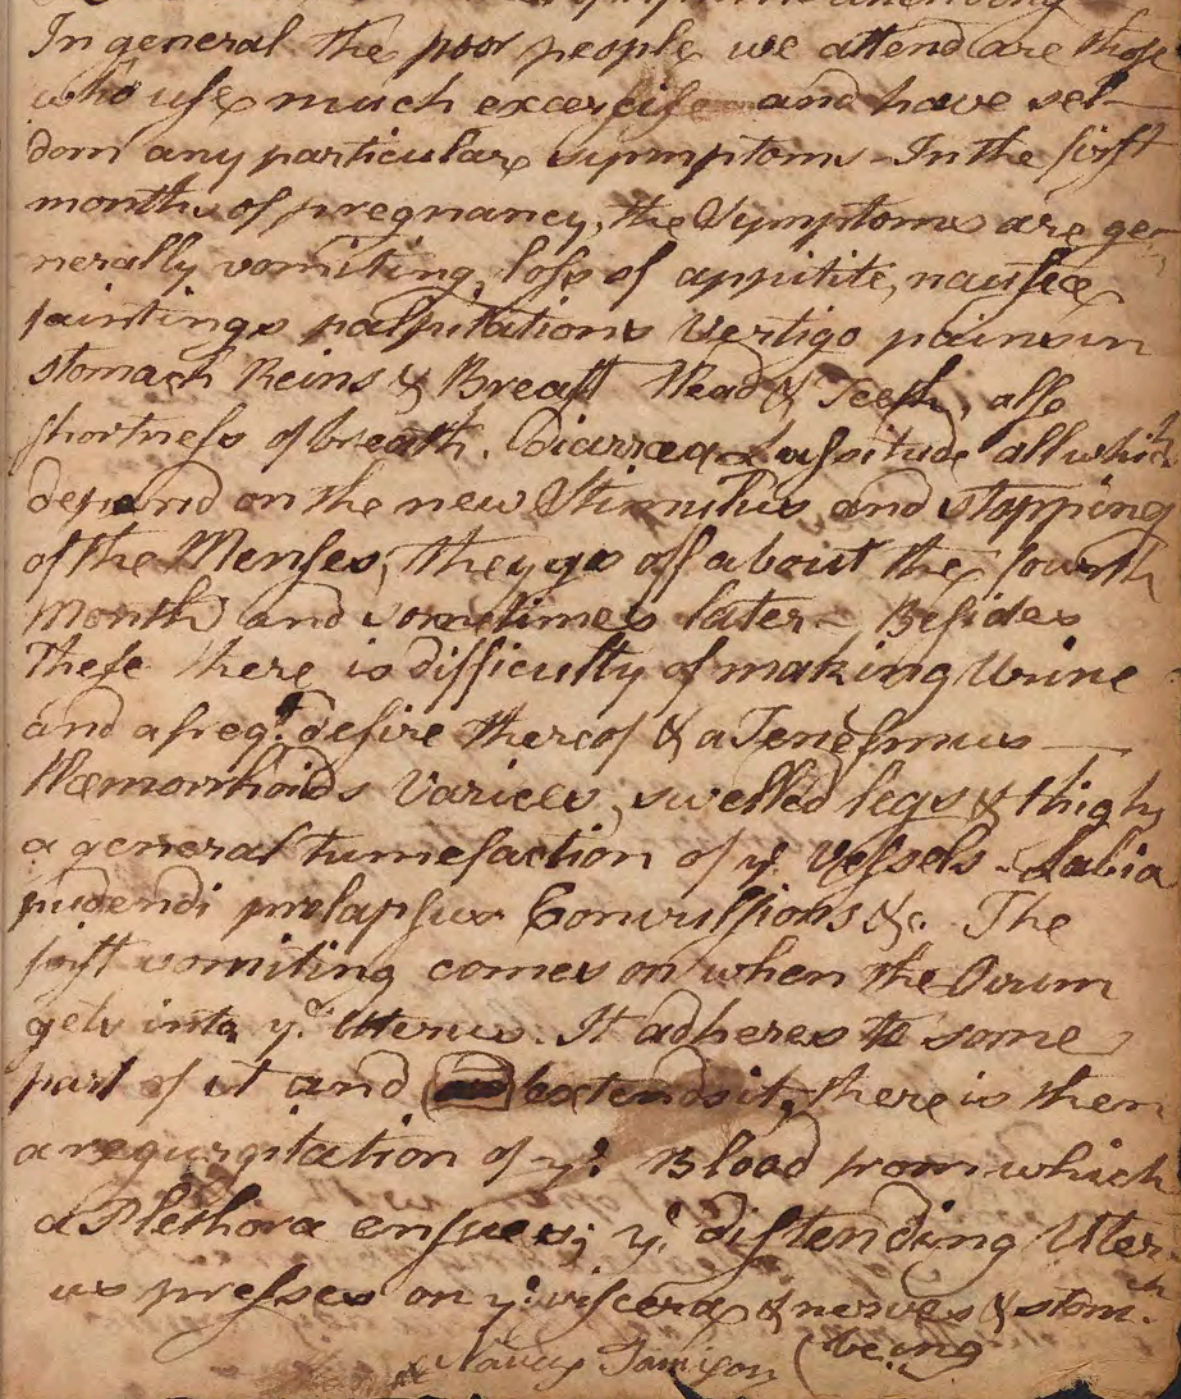 In general the poor people we attend are those
who use much excercise and have sel-
dom any particular symptoms - In the first
months of pregnancy, the Symptoms are ge-
nerally vomiting, loss of appitite, nausea
faintings palpitations Vertigo pains in
stomach Reins & Breast Head & Teeth, also
shortness of breath. Diarrea Lassitude all which
depend on the new Stimulus and stopping
of the Menses, they go off about the fourth
Month and sometimes later - Besides
These there is difficulty of making Urine
and a freqt. desire thereof & a Tenesmus
Hæmorrhoids Varices, swelled legs & thighs
a general tumefaction of ye. Vessels - Labia
pudendi prolapsus Convulsions &c. The
first vomiting comes on when the Ovum
gets into ye. Uterus. It adheres to some
part of it and extends it, there is then
a regurgitation of ye. Blood from which
a Plethora ensues; ye. distending Uter-
us presses on ye. viscera & nerves & stom-
ach
(being
Nancy Jamison